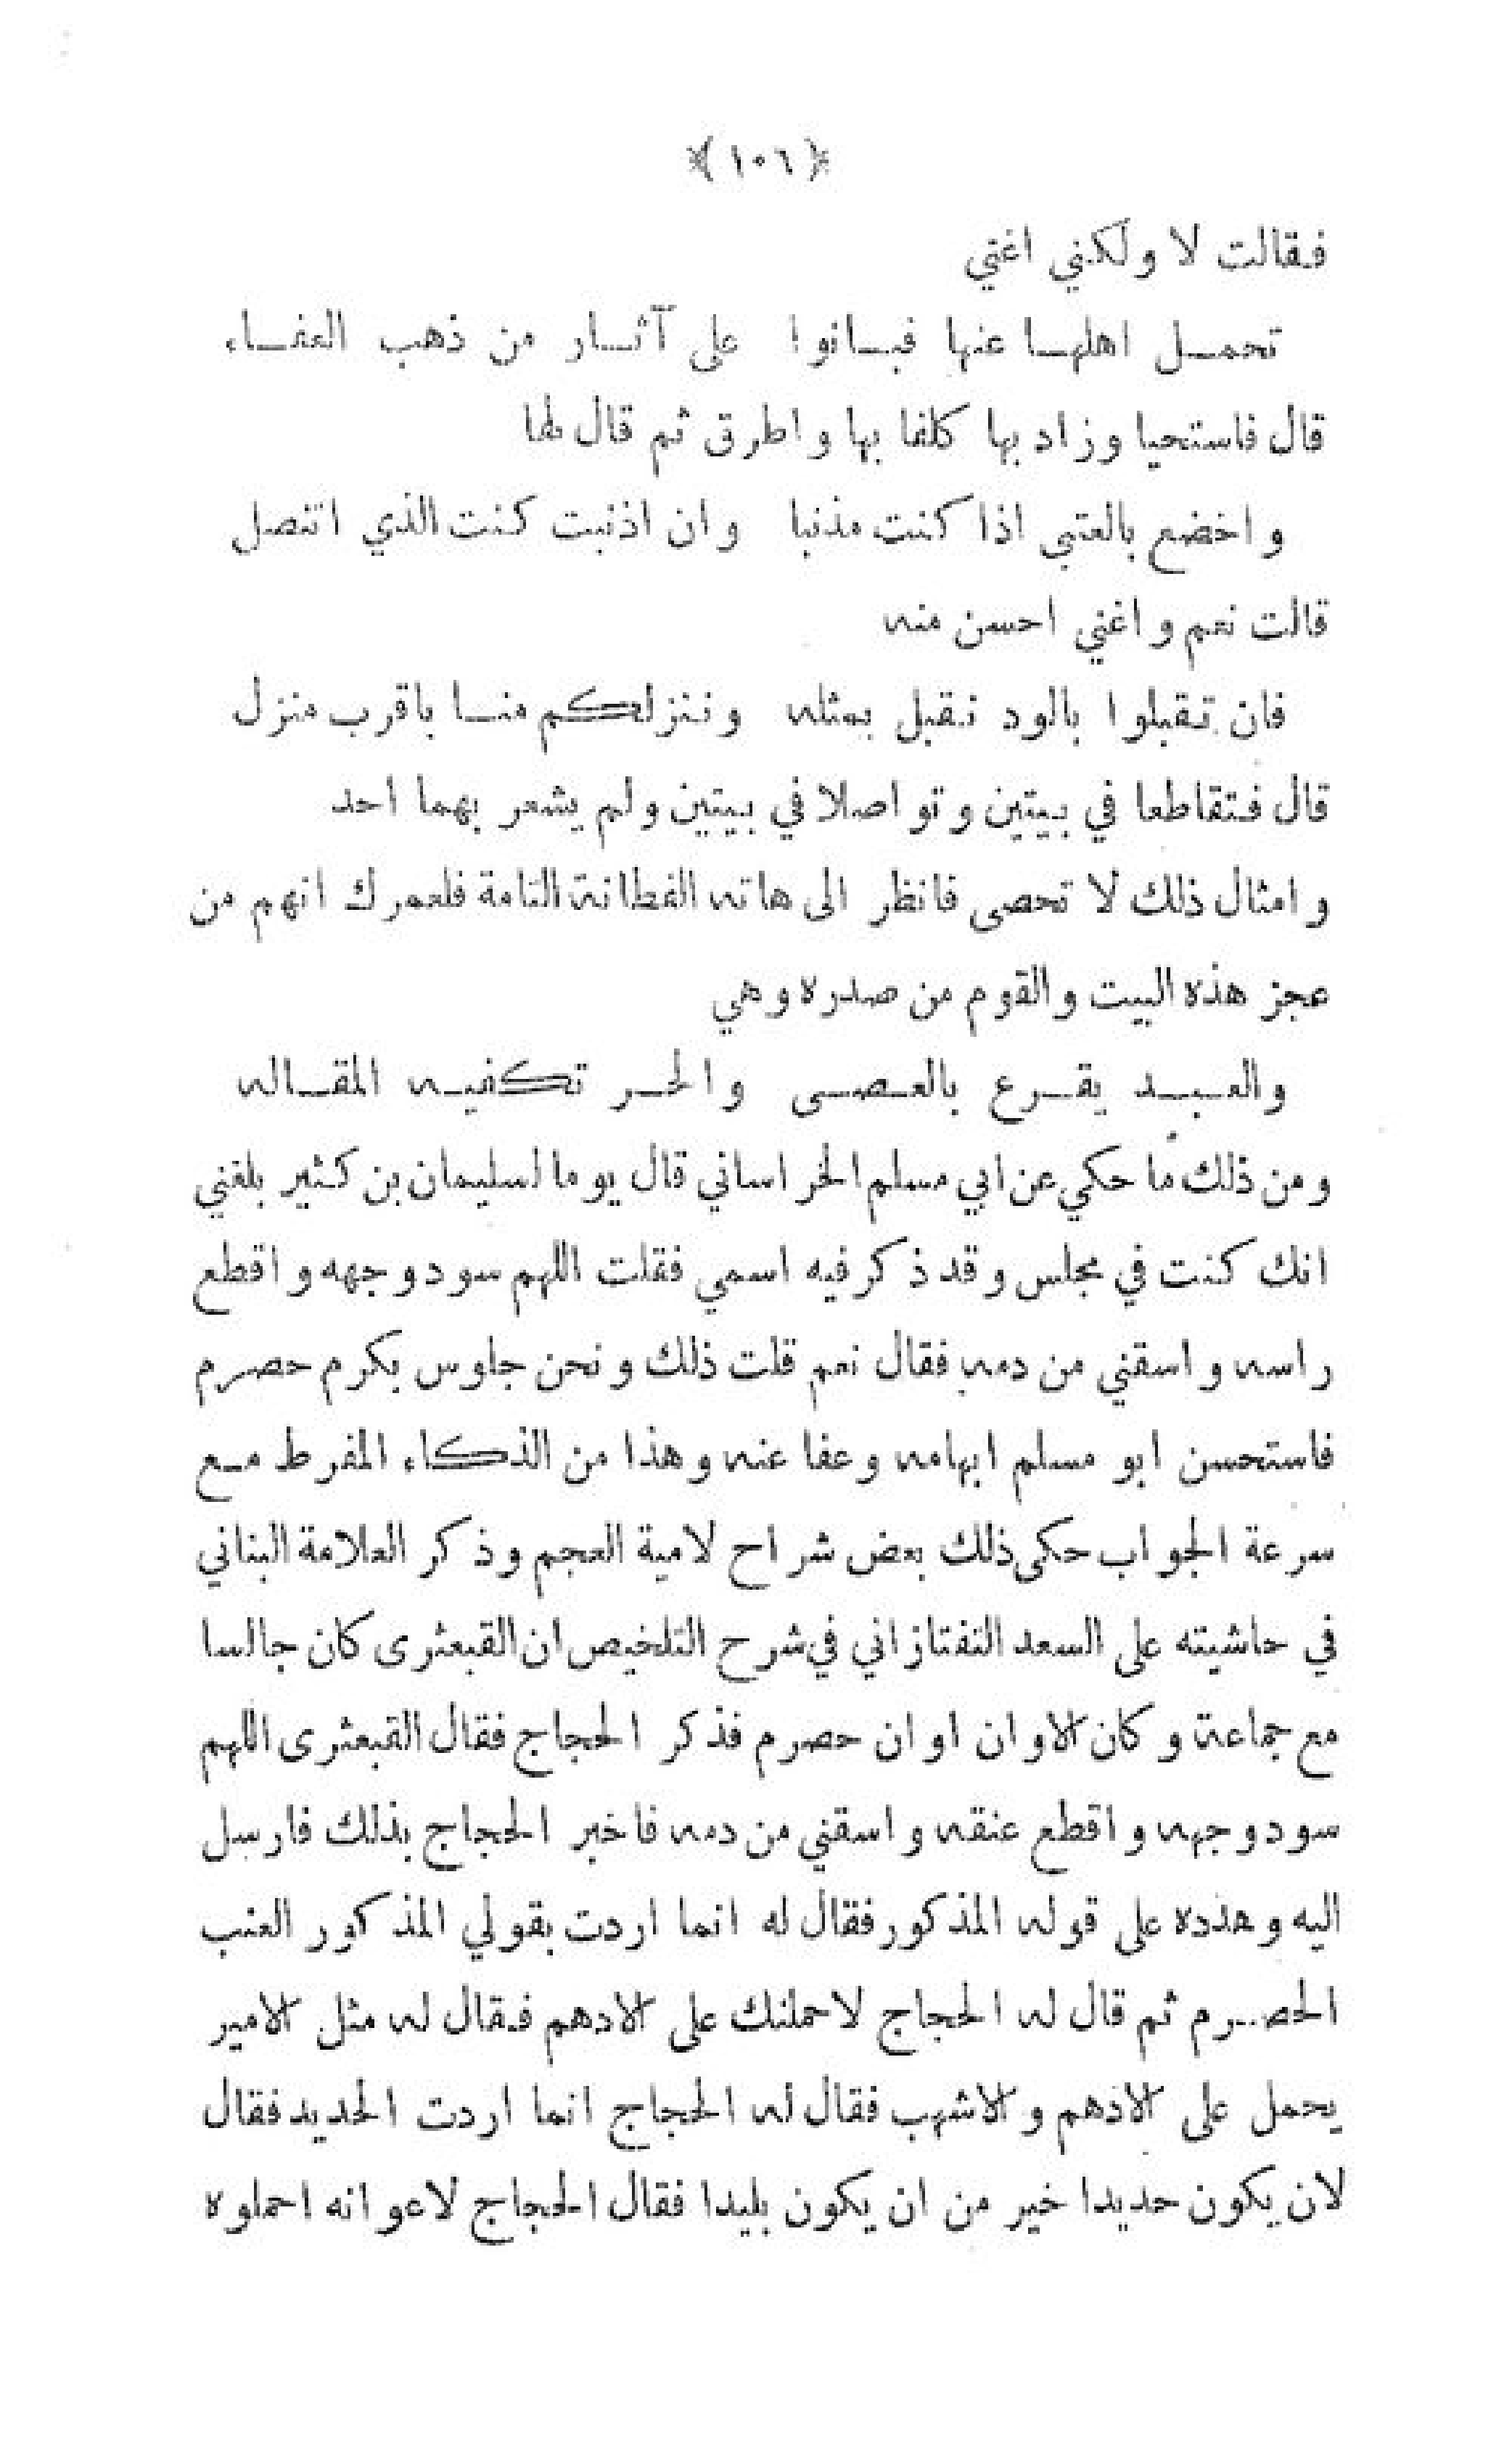 ﴿١٠٦﴾
فقالت لا ولكني اغني
تحمل اهلها عنها فبانوا على آثار من ذهب العفاء
قال فاستحيا وزاد بها كلفا بها واطرق ثم قال لها
واخضع بالعتبى اذا كنت مذنبا وان اذنبت كنت الذي اتنصل
قالت نعم واغني احسن منه
فان تقبلوا بالود نقبل بمثله وننزلكم منا باقرب منزل
قال فتقاطعا في بيتين وتواصلا في بيتين ولم يشعر بهما احد
وامثال ذلك لا تحصى فانظر الى هاته الفطانة التامة فلعمرك انهم من
عجز هذه البيت والقوم من صدره وهي
والعبد يقرع بالعصى والحر تكفيه المقاله
ومن ذلك ما حكي عن ابي مسلم الخراساني قال يوما لسليمان بن كثير بلغني
انك كنت في مجلس وقد ذكر فيه اسمي فقلت اللهم سود وجهه واقطع
راسه واسقني من دمه فقال نعم قلت ذلك ونحن جلوس بكرم حصرم
فاستحسن ابو مسلم ابهامه وعفا عنه وهذا من الذكاء المفرط مع
سرعة الجواب حكى ذلك بعض شراح لامية العجم وذكر العلامة البناني
في حاشيته على السعد التفتازاني في شرح التلخيص ان القبعثرى كان جالسا
مع جماعة وكان الاوان اوان حصرم فذكر الحجاج فقال القبعثرى اللهم
سود وجهه واقطع عنقه واسقني من دمه فاخبر الحجاج بذلك فارسل
اليه وهدده على قوله المذكور فقال له انما اردت بقولي المذكور العنب
الحصرم ثم قال له الحجاج لاحملنك على الادهم فقال له مثل الامير
يحمل على الادهم والاشهب فقال له الحجاج انما اردت الحديد فقال
لان يكون حديدا خير من ان يكون بليدا فقال الحجاج لاعوانه احملوه